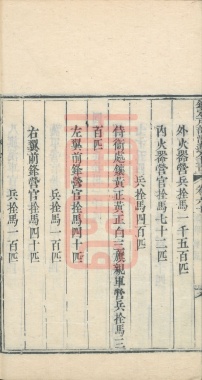 外火器營兵拴馬一千五百匹
內火器營官拴馬七十二匹
兵拴馬四百匹
侍衛處鑲黃正黃正白三旗親軍營兵拴馬三
百匹
左翼前鋒營官拴馬四十匹
兵拴馬一百匹
右翼前鋒營官拴馬四十匹
兵拴馬一百匹